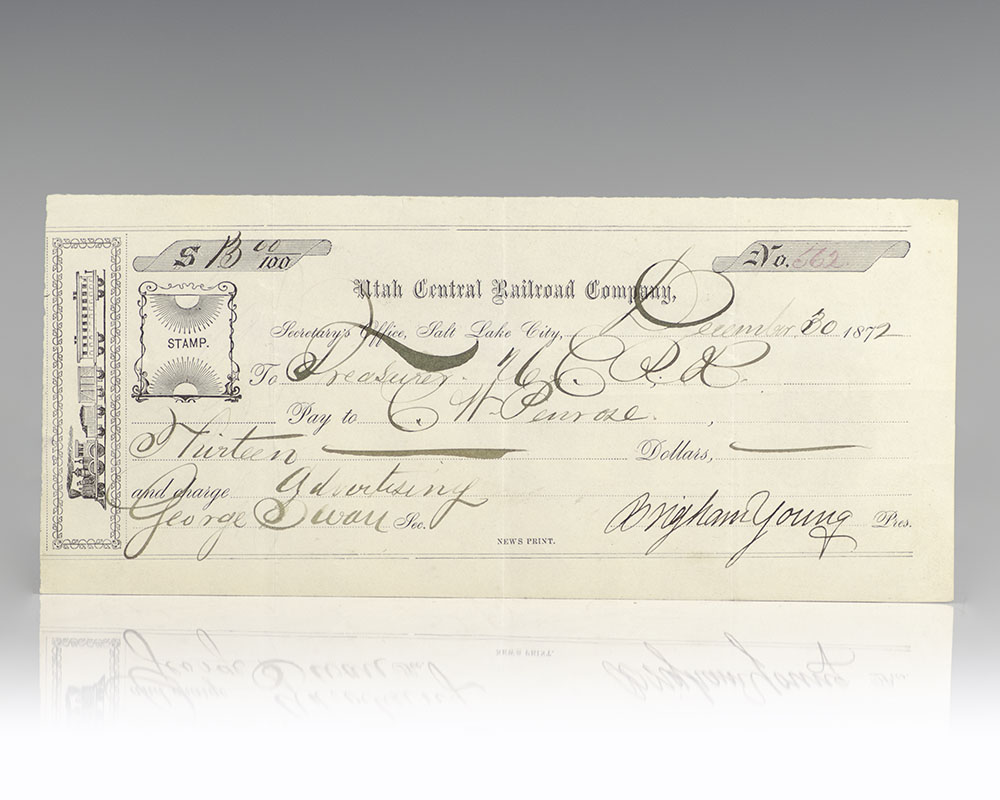 $ 13 00/100
No. 562
Utah Central Railroad Company,
Secretary's Office, Salt Lake City, December 30 1872
STAMP.
To Treasurer U. C. R. R.
Pay to C. W. Penrose.,
Thirteen Dollars,
and charge Advertising
George Swan Sec.
Brigham Young Pres.
NEWS PRINT.